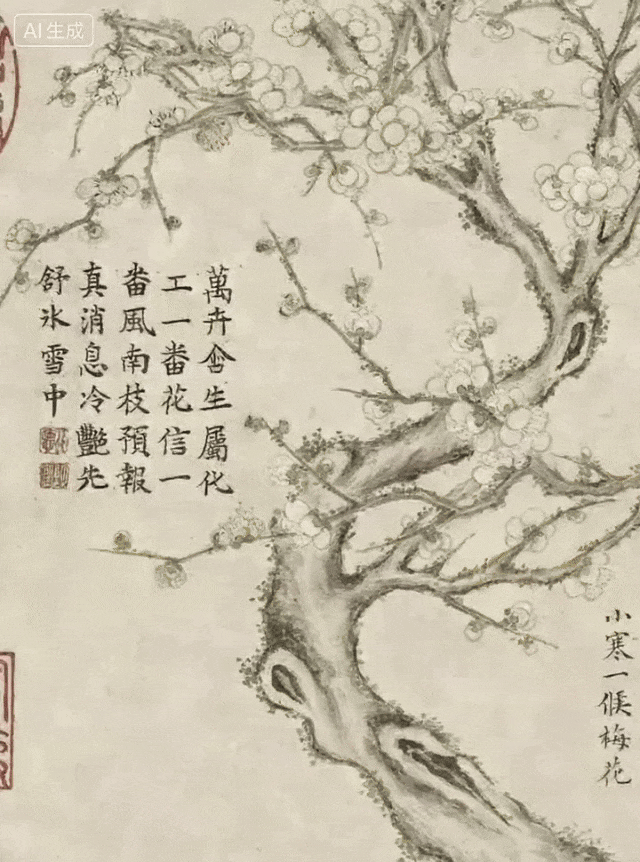 AI生成
小寒一候梅花
萬卉含生屬化
工一番花信一
番風南枝預報
真消息冷艷先
舒氷雪中